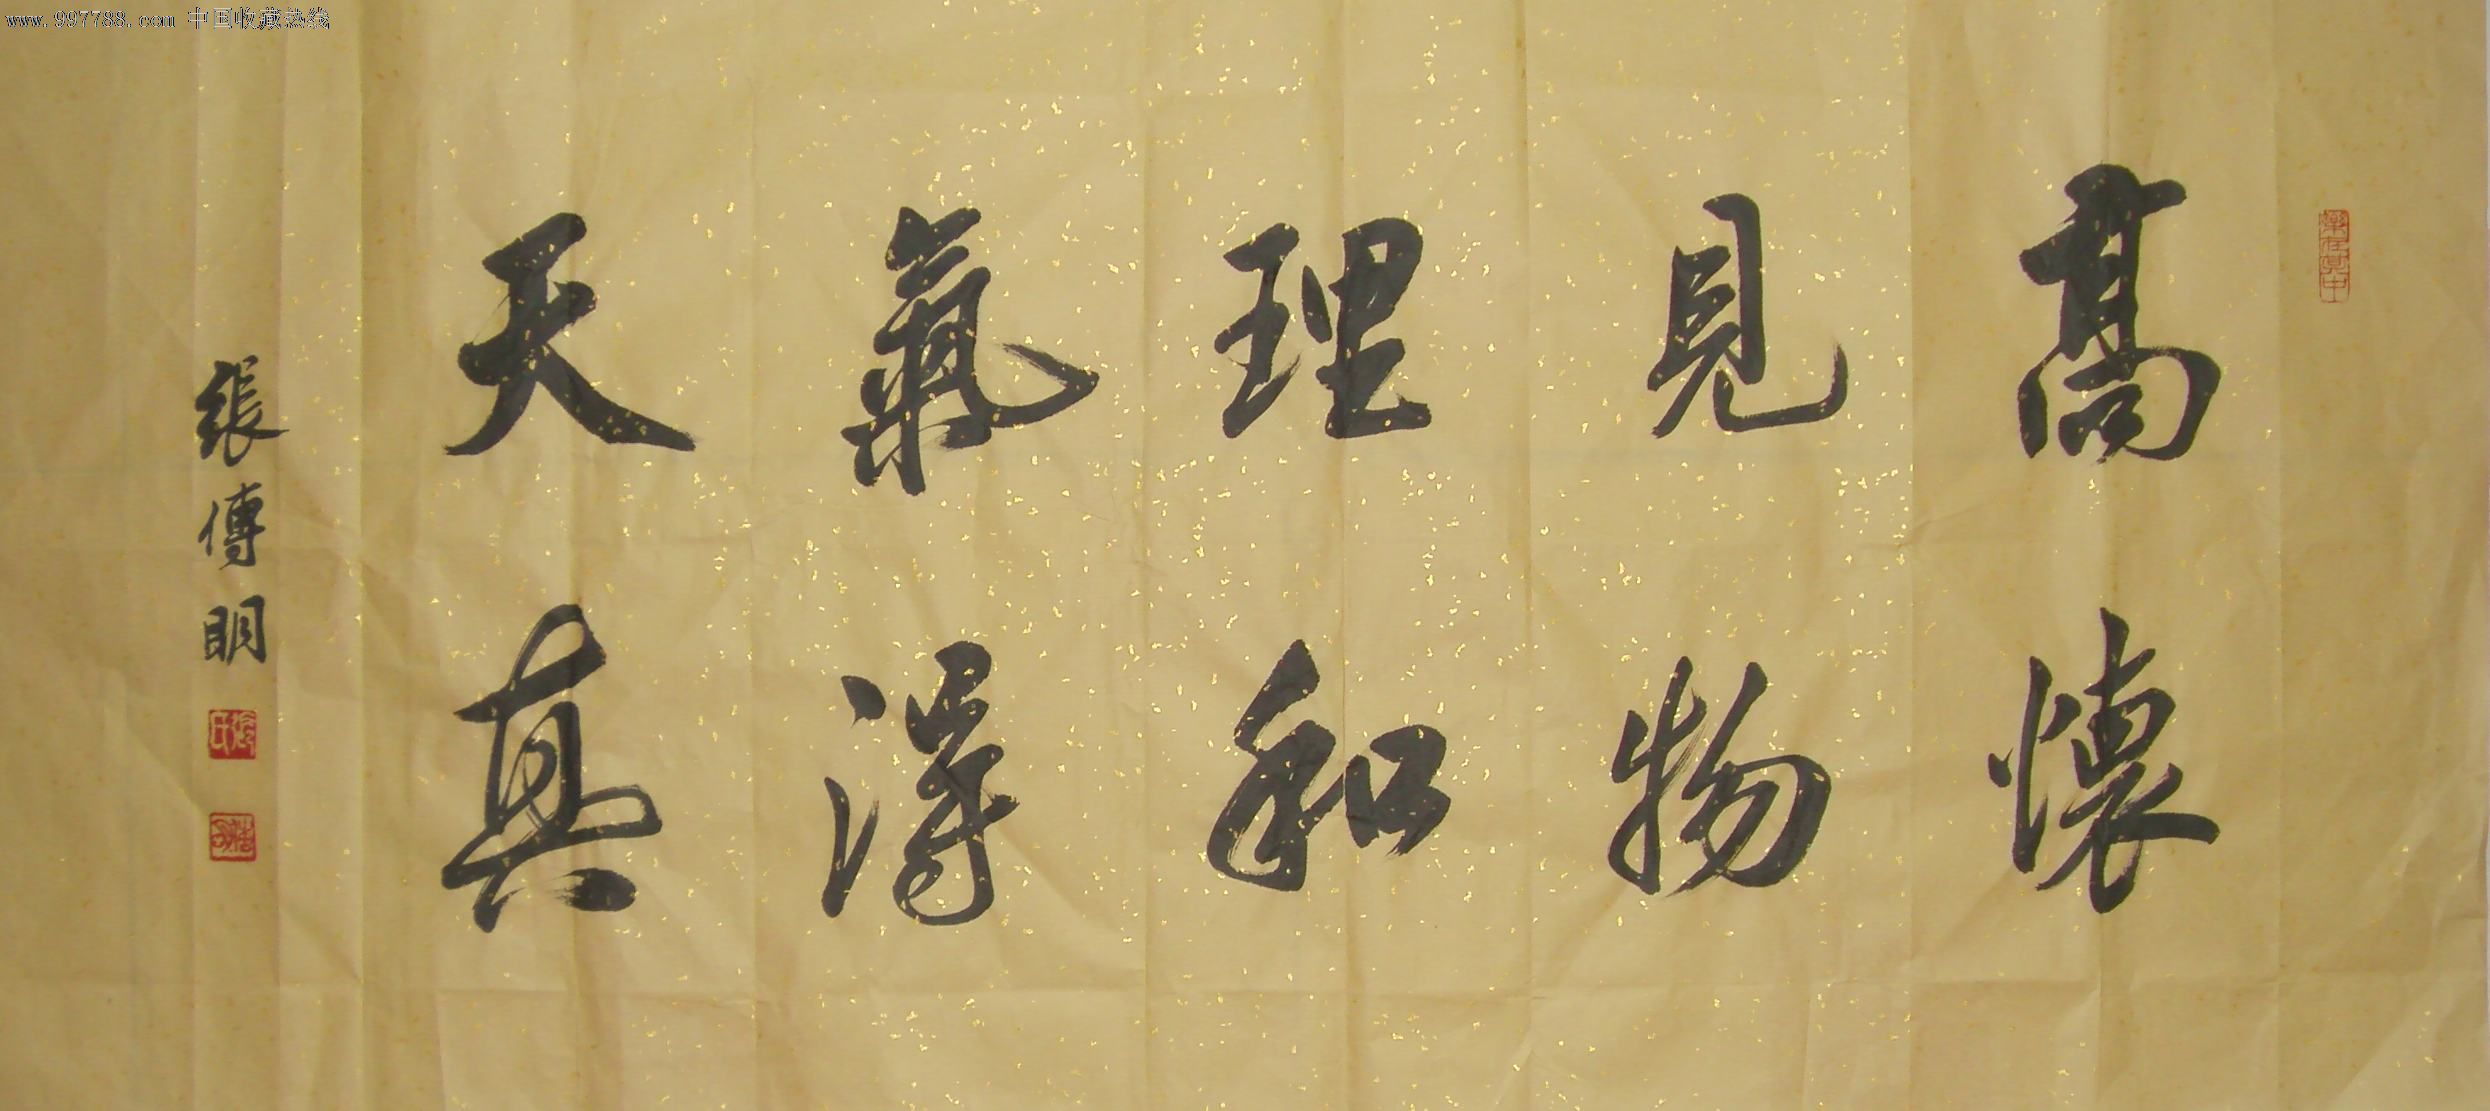 www.997788.com 中国收藏热线
樂在其中
高懷
見物
理和
氣得
天真
張傳明
張氏